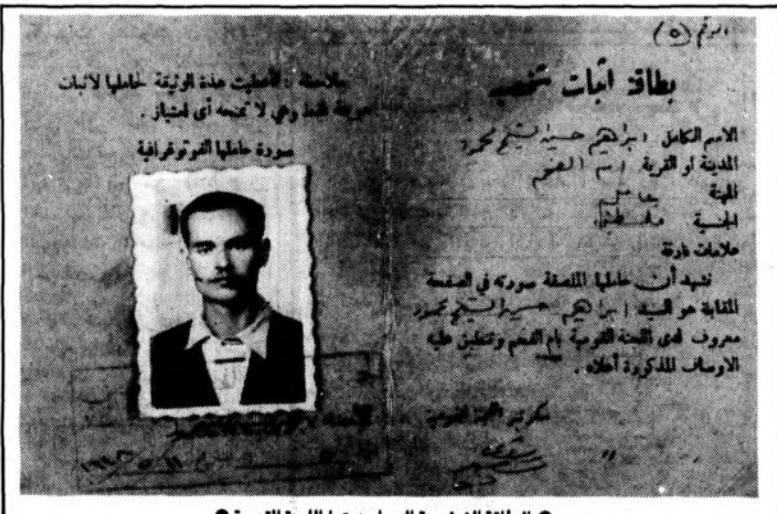 الرقم (٥)
بطاقة اثبات شخصية
الاسم الكامل ابراهيم حسين الشيخ محمود
المدينة او القرية ام الفحم
المهنة عامل
الجنسية فلسطيني
علامات فارقة
نشهد أن حاملها الملصقة صورته في الصفحة
المقابلة هو السيد ابراهيم حسين الشيخ محمود
معروف لدى اللجنة القومية بام الفحم وتنطبق عليه
الاوصاف المذكورة أعلاه .
سكرتير اللجنة القومية
ملاحظة : اعطيت هذه الوثيقة لحاملها لاثبات
هويته فقط وهي لا تمنحه أى امتياز .
صورة حاملها الفوتوغرافية